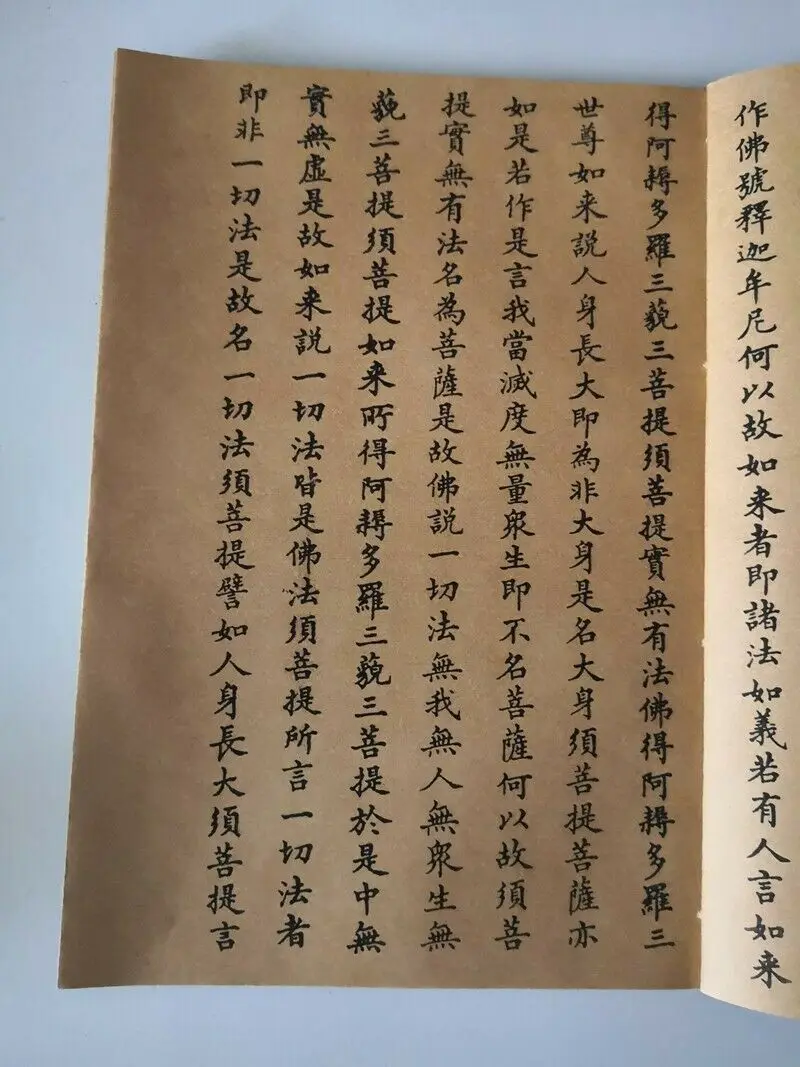 作佛號釋迦牟尼何以故如来者即諸法如義若有人言如来
得阿耨多羅三藐三菩提須菩提實無有法佛得阿耨多羅三
世尊如来說人身長大即為非大身是名大身須菩提菩薩亦
如是若作是言我當滅度無量眾生即不名菩薩何以故須菩
提實無有法名為菩薩是故佛說一切法無我無人無眾生無
藐三菩提須菩提如来所得阿耨多羅三藐三菩提於是中無
實無虛是故如来說一切法皆是佛法須菩提所言一切法者
即非一切法是故名一切法須菩提譬如人身長大須菩提言